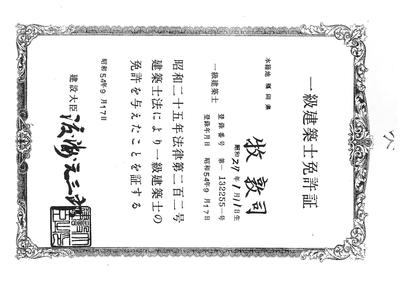 一級建築士免許証
本籍地 福岡県
牧 敦司
昭和27年1月11日生
一級建築士 登録番号 第132255号
登録年月日 昭和54年9月17日
昭和二十五年法律第二百二号
建築士法により一級建築士の
免許を与えたことを証する
昭和54年9月17日
建設大臣